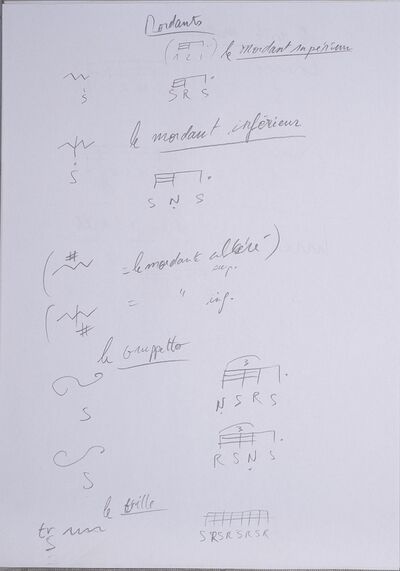 Mordants
( 1 2 1 ) le mordant supérieur
S S R S
le mordant inférieur
S S Ṇ S
( # = le mordant altéré )
sup.
( # = " inf.
le Gruppetto
3
S Ṇ S R S
3
S R S Ṇ S
le trille
tr
S S R S R S R S R